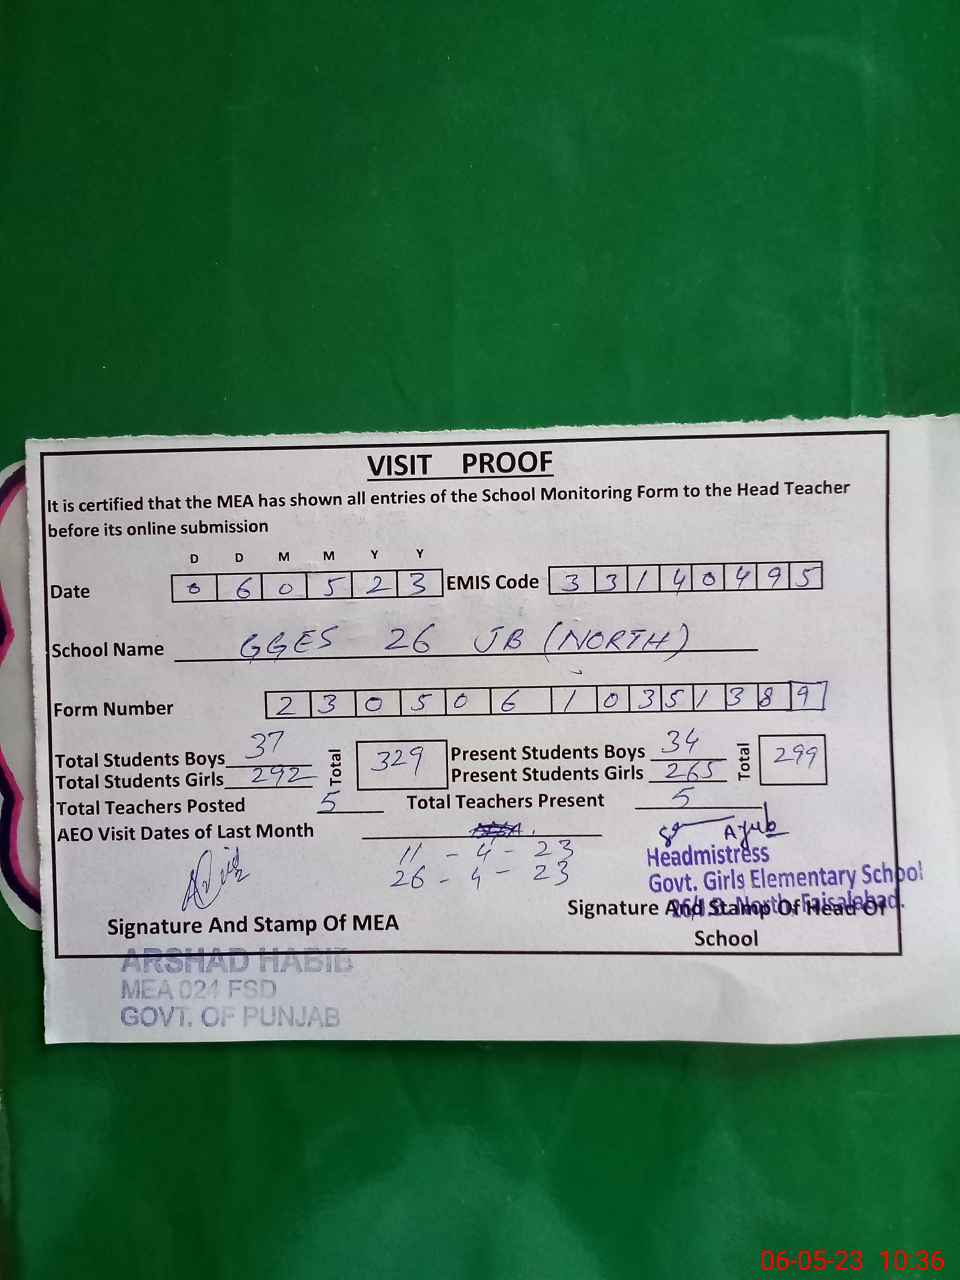 VISIT PROOF
It is certified that the MEA has shown all entries of the School Monitoring Form to the Head Teacher
before its online submission
D D M M Y Y
Date 0 6 0 5 2 3 EMIS Code 3 3 1 4 0 4 9 5
School Name GGES 26 JB (NORTH)
Form Number 2 3 0 5 0 6 1 0 3 5 1 3 8 9
Total Students Boys 37 Total 329 Present Students Boys 34 Total 299
Total Students Girls 292 Present Students Girls 265
Total Teachers Posted 5 Total Teachers Present 5
AEO Visit Dates of Last Month
11 - 4 - 23
26 - 4 - 23
Ayub
Headmistress
Govt. Girls Elementary School
North, Faisalabad.
Signature And Stamp Of MEA
Signature And Stamp Of Head Of
School
ARSHAD HABIB
MEA 021 FSD
GOVT. OF PUNJAB
06-05-23 10:36